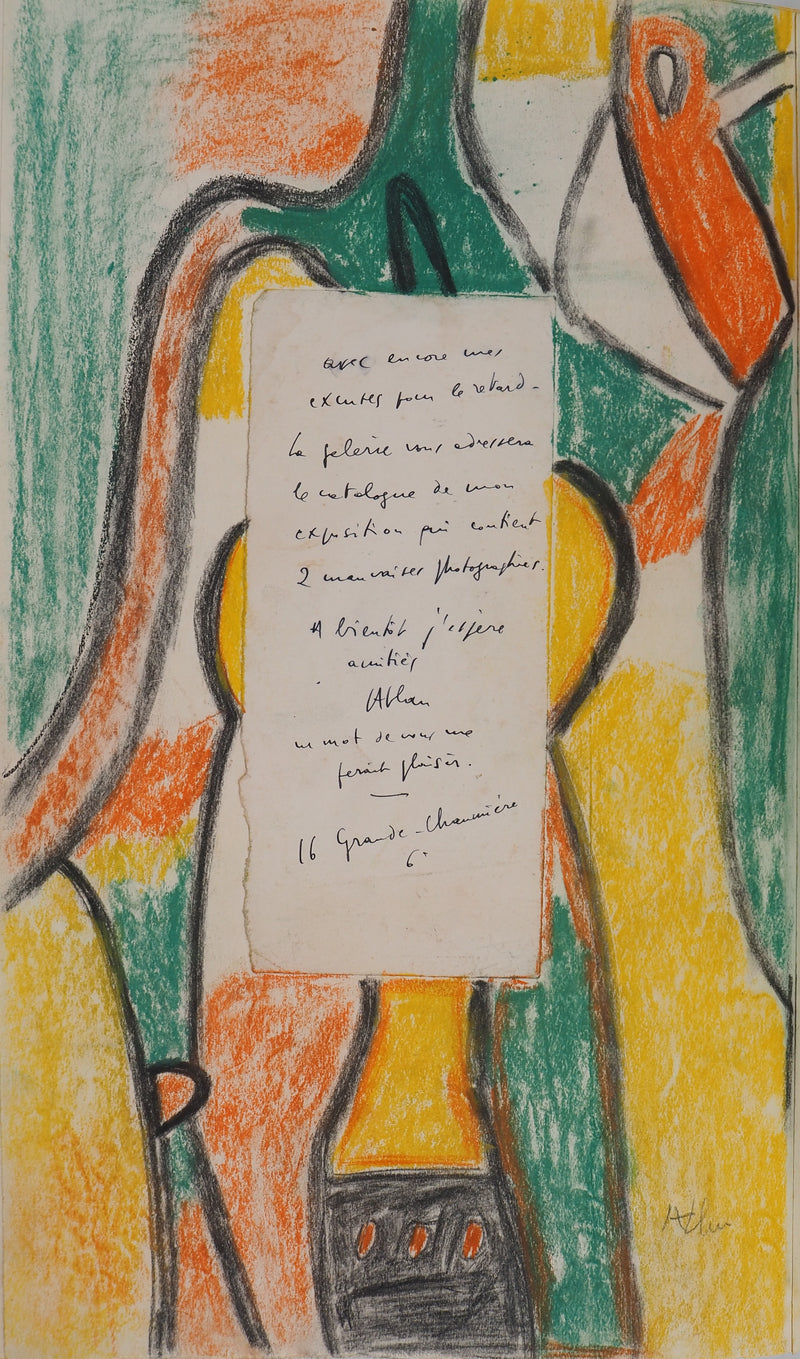 avec encore mes
excuses pour le retard -
La galerie vous adressera
le catalogue de mon
exposition qui contient
2 mauvaises photographies.
A bientôt j'espère
amitiés
Atlan
un mot de vous me
ferait plaisir.
16 Grande-Chaumière
6e
Atlan